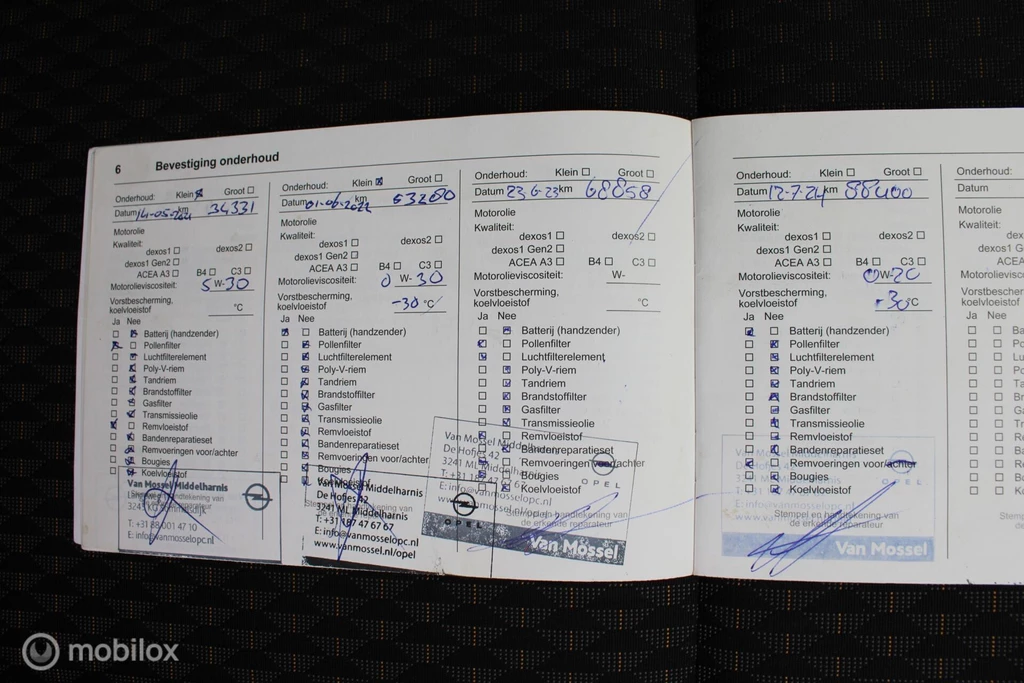 6 Bevestiging onderhoud
Onderhoud: Klein Groot
Datum 14-05-2021 km 34331
Motorolie
Kwaliteit:
dexos1 dexos2
dexos1 Gen2
ACEA A3 B4 C3
Motorolieviscositeit: 5 W-30
Vorstbescherming,
koelvloeistof °C
Ja Nee
Batterij (handzender)
Pollenfilter
Luchtfilterelement
Poly-V-riem
Tandriem
Brandstoffilter
Gasfilter
Transmissieolie
Remvloeistof
Bandenreparatieset
Remvoeringen voor/achter
Bougies
Koelvloeistof
Van Mossel Middelharnis
T: +31 88 001 47 10
E: info@vanmosselopc.nl
Onderhoud: Klein Groot
Datum 01-06-2022 km 53280
Motorolie
Kwaliteit:
dexos1 dexos2
dexos1 Gen2
ACEA A3 B4 C3
Motorolieviscositeit: 0 W-30
Vorstbescherming,
koelvloeistof -30 °C
Ja Nee
Batterij (handzender)
Pollenfilter
Luchtfilterelement
Poly-V-riem
Tandriem
Brandstoffilter
Gasfilter
Transmissieolie
Remvloeistof
Bandenreparatieset
Remvoeringen voor/achter
Bougies
Koelvloeistof
Van Mossel Middelharnis
De Hofjes 42
3241 ML Middelharnis
T: +31 187 47 67 67
E: info@vanmosselopc.nl
www.vanmossel.nl/opel
OPEL
Onderhoud: Klein Groot
Datum 23-6-23 km 68858
Motorolie
Kwaliteit:
dexos1 dexos2
dexos1 Gen2
ACEA A3 B4 C3
Motorolieviscositeit: W-
Vorstbescherming,
koelvloeistof °C
Ja Nee
Batterij (handzender)
Pollenfilter
Luchtfilterelement
Poly-V-riem
Tandriem
Brandstoffilter
Gasfilter
Transmissieolie
Remvloeistof
Bandenreparatieset
Remvoeringen voor/achter
Bougies
Koelvloeistof
Van Mossel Middelharnis
De Hofjes 42
3241 ML Middelharnis
OPEL
Stempel en handtekening van
de erkende reparateur
Van Mossel
Onderhoud: Klein Groot
Datum 12-7-24 km 88400
Motorolie
Kwaliteit:
dexos1 dexos2
dexos1 Gen2
ACEA A3 B4 C3
Motorolieviscositeit: 0W-20
Vorstbescherming,
koelvloeistof -30°C
Ja Nee
Batterij (handzender)
Pollenfilter
Luchtfilterelement
Poly-V-riem
Tandriem
Brandstoffilter
Gasfilter
Transmissieolie
Remvloeistof
Bandenreparatieset
Remvoeringen voor/achter
Bougies
Koelvloeistof
OPEL
Stempel en handtekening van
de erkende reparateur
Van Mossel
Onderhoud:
Datum
Motorolie
Kwaliteit:
Ja Nee
mobilox